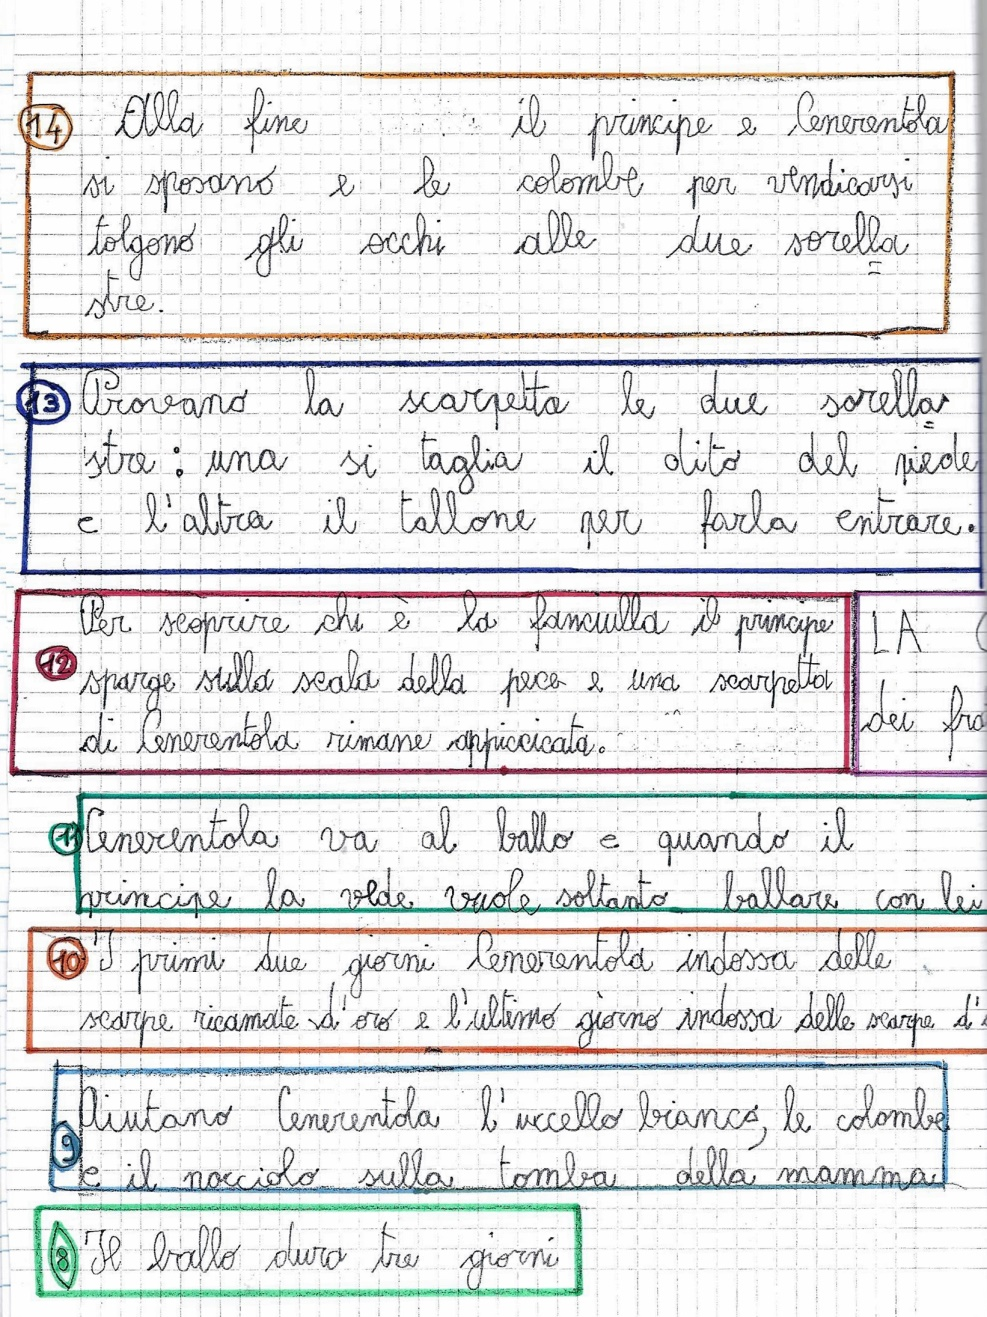 14 Alla fine il principe e Cenerentola
si sposano e le colombe per vendicarsi
tolgono gli occhi alle due sorella
stre.
13 Provano la scarpetta le due sorella
stre: una si taglia il dito del piede
e l'altra il tallone per farla entrare.
12 Per scoprire chi è la fanciulla il principe
sparge sulla scala della pece e una scarpetta
di Cenerentola rimane appiccicata.
LA
dei
11 Cenerentola va al ballo e quando il
principe la vede vuole soltanto ballare con lei
10 I primi due giorni Cenerentola indossa delle
scarpe ricamate d'oro e l'ultimo giorno indossa delle scarpe d'
9 Aiutano Cenerentola l'uccello bianco, le colombe
e il nocciolo sulla tomba della mamma
8 Il ballo dura tre giorni